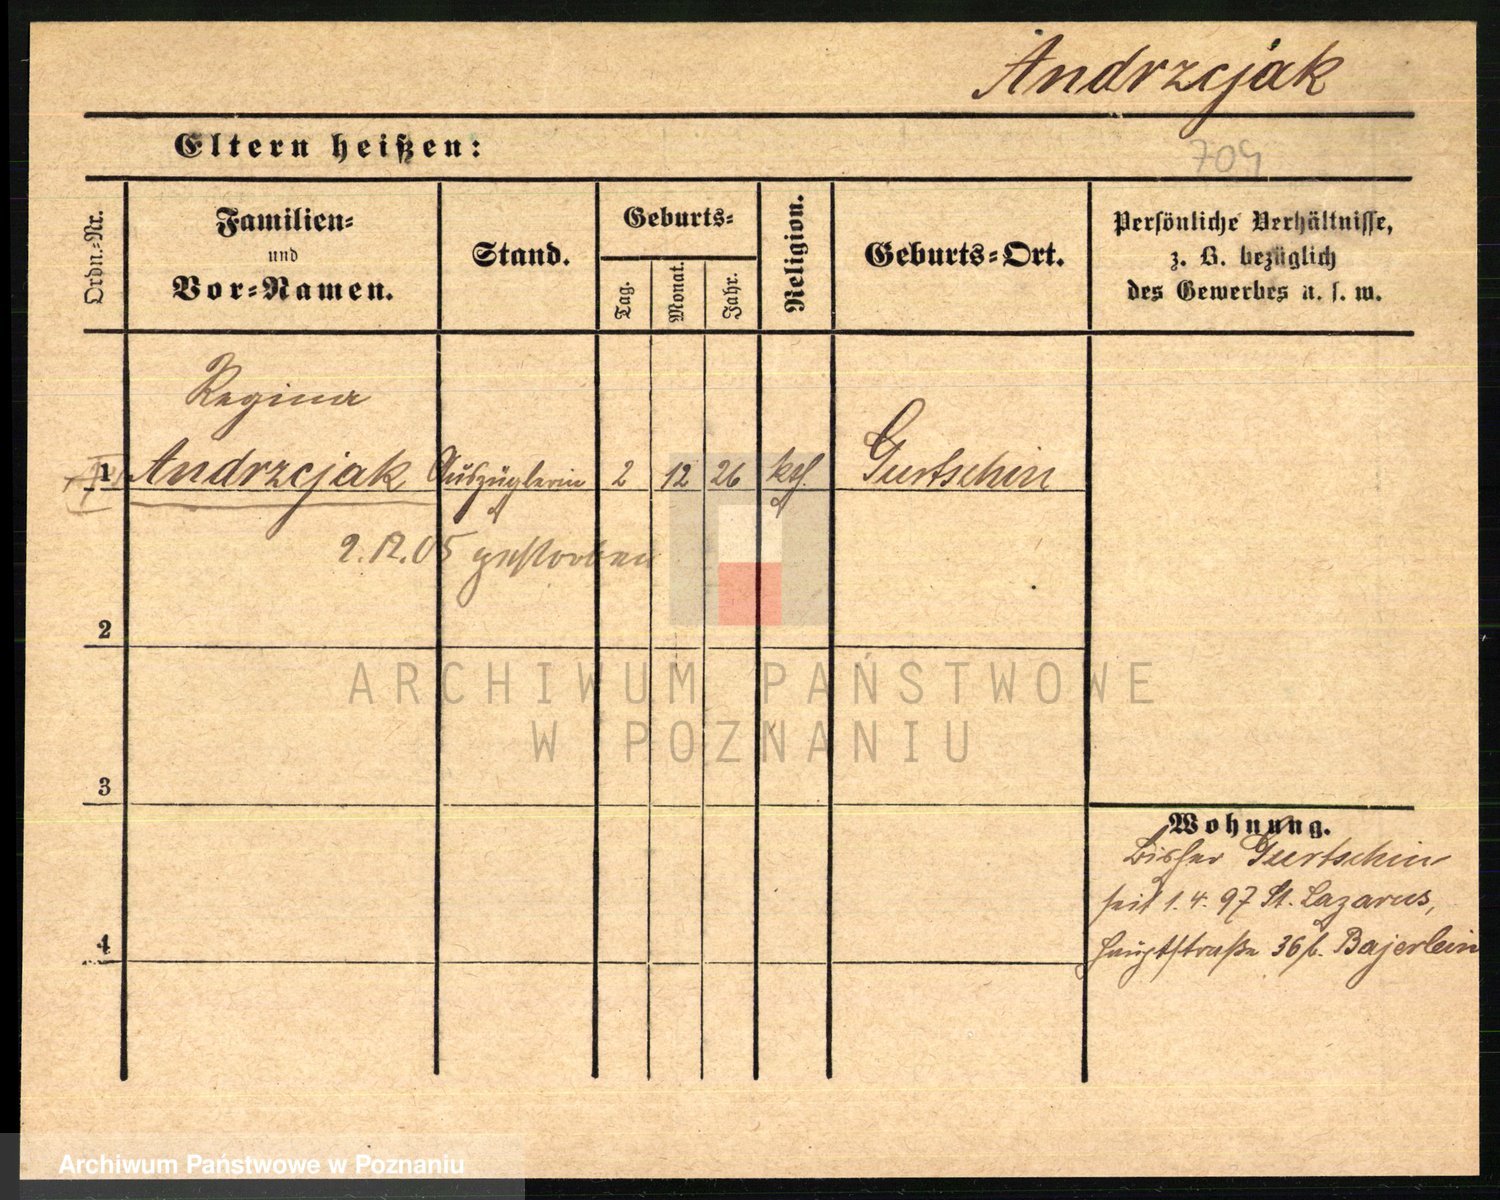 Andrzcjak
Eltern heißen:
704
Ordn.=Nr.
Familien=
und
Vor=Namen.
Stand.
Geburts=
Tag.
Monat.
Jahr.
Religion.
Geburts=Ort.
Persönliche Verhältnisse,
z. B. bezüglich
des Gewerbes u. s. w.
Regina
1 Andrzcjak Auszüglerin 2 12 26 kth. Gurtschin
2.12.05 gestorben
2
ARCHIWUM PAŃSTWOWE
W POZNANIU
3
Wohnung.
bisher Gurtschin
seit 1. 4. 97 St. Lazarus,
Hauptstraße 36 b. Bajerlein
4
Archiwum Państwowe w Poznaniu